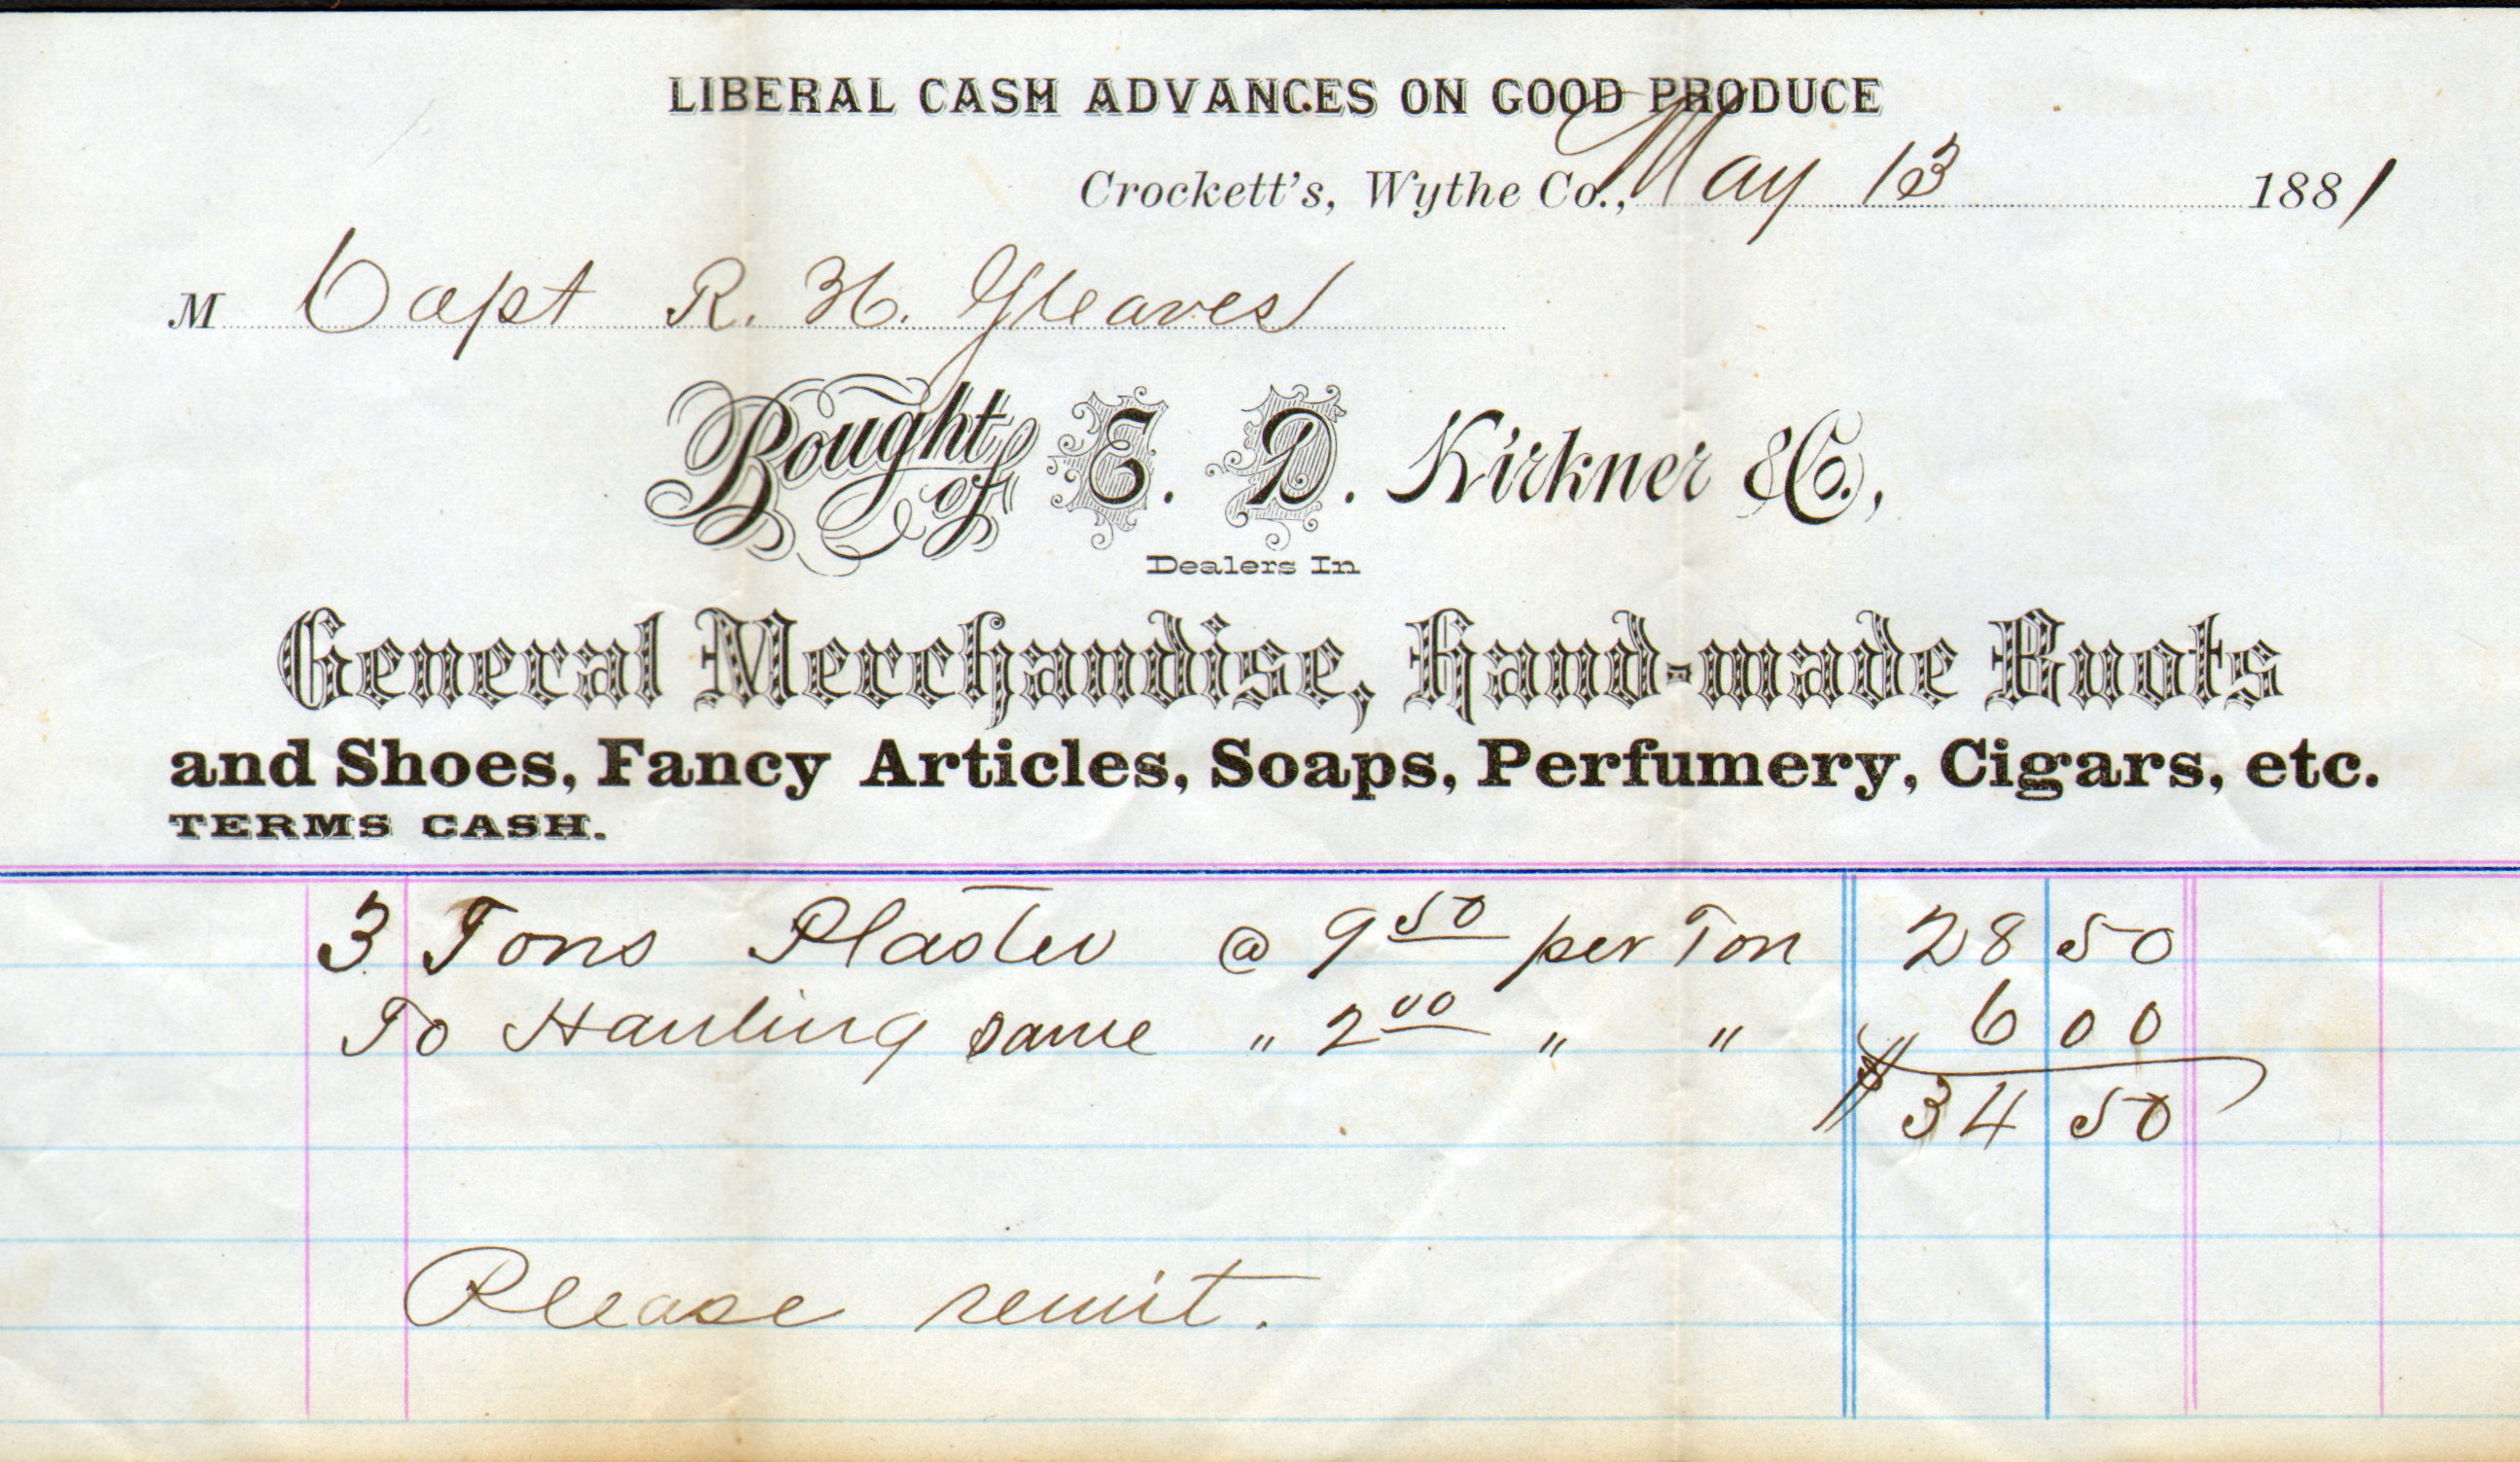 LIBERAL CASH ADVANCES ON GOOD PRODUCE
Crockett's, Wythe Co., May 13 1881
M Capt R. H. Gleaves
Bought of E. D. Kirkner & Co.,
Dealers In
General Merchandise, Hand-made Buots
and Shoes, Fancy Articles, Soaps, Perfumery, Cigars, etc.
TERMS CASH.
3 Tons Plaster @ 9 50 per Ton 28 50
To Hauling same " 2 00 " " 6 00
$ 34 50
Please remit.